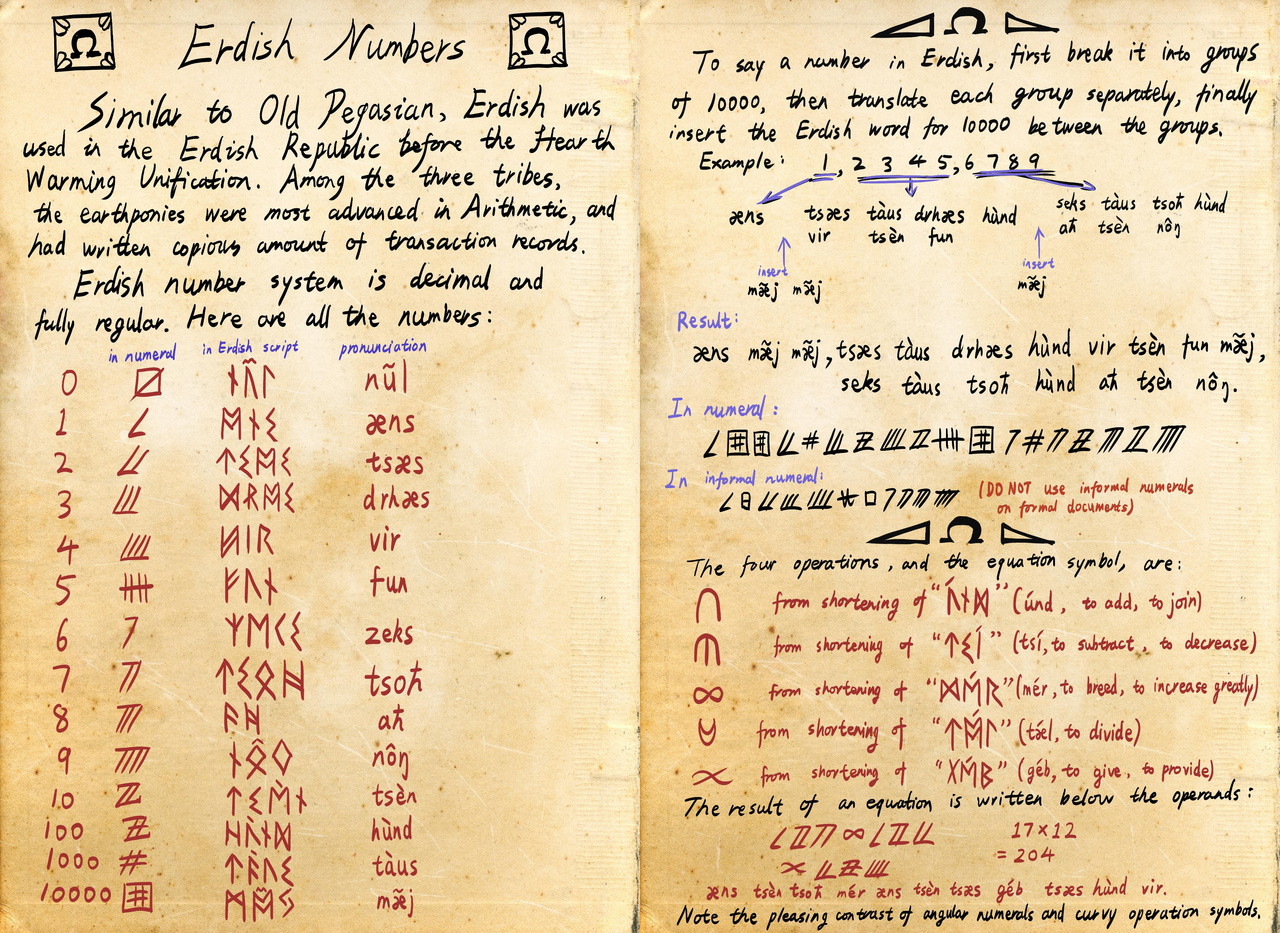 Erdish Numbers
Similar to Old Pegasian, Erdish was
used in the Erdish Republic before the Hearth
Warming Unification. Among the three tribes,
the earthponies were most advanced in Arithmetic, and
had written copious amount of transaction records.
Erdish number system is decimal and
fully regular. Here are all the numbers:
in numeral in Erdish script pronunciation
0 ᚾᚢ̃ᛚ nũl
1 ᛖᚾᛊ æns
2 ᛏᛊᛖᛊ tsæs
3 ᛞᚱᛖᛊ drhæs
4 ᛋᛁᚱ vir
5 ᚠᚢᚾ fun
6 zeks
7 tsoħ
8 aħ
9 nôŋ
10 tsèn
100 hùnd
1000 tàus
10000 mæ̃j
To say a number in Erdish, first break it into groups
of 10000, then translate each group separately, finally
insert the Erdish word for 10000 between the groups.
Example: 1,2345,6789
æns tsæs tàus drhæs hùnd seks tàus tsoħ hùnd
vir tsèn fun aħ tsèn nôŋ
insert insert
mæ̃j mæ̃j mæ̃j
Result:
æns mæ̃j mæ̃j, tsæs tàus drhæs hùnd vir tsèn fun mæ̃j,
seks tàus tsoħ hùnd aħ tsèn nôŋ.
In numeral:
In informal numeral:
(DO NOT use informal numerals
on formal documents)
The four operations, and the equation symbol, are:
from shortening of "ᚢ́ᚾᛞ" (únd, to add, to join)
from shortening of "ᛏᛊᛁ́" (tsí, to subtract, to decrease)
from shortening of "ᛞᛖ́ᚱ" (mér, to breed, to increase greatly)
from shortening of "ᛏᛖ́ᛚ" (tǽl, to divide)
from shortening of "ᚷᛖ́ᛒ" (géb, to give, to provide)
The result of an equation is written below the operands:
17×12
=204
æns tsèn tsoħ mér æns tsèn tsæs géb tsæs hùnd vir.
Note the pleasing contrast of angular numerals and curvy operation symbols.